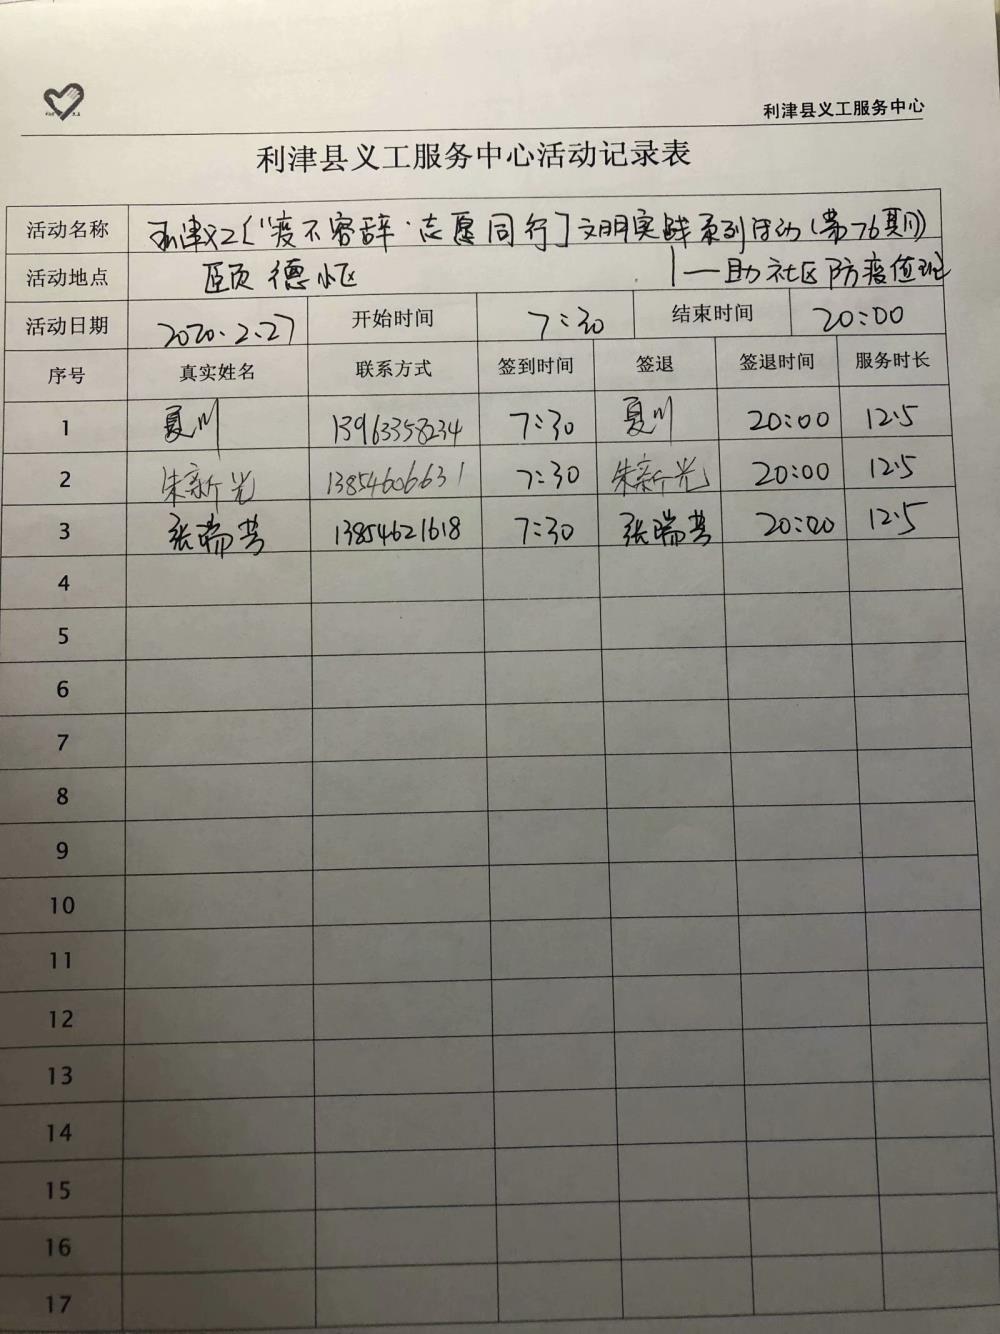 利津县义工服务中心
利津县义工服务中心活动记录表
活动名称 利津义工["疫不容辞·志愿同行]文明实践系列活动(第76期)
活动地点 颐德小区 |—助社区防疫值班
活动日期 2020.2.27 开始时间 7:30 结束时间 20:00
序号 真实姓名 联系方式 签到时间 签退 签退时间 服务时长
1 夏川 13963358234 7:30 夏川 20:00 12.5
2 朱新光 13854606631 7:30 朱新光 20:00 12.5
3 张瑞芸 13854621618 7:30 张瑞芸 20:00 12.5
4
5
6
7
8
9
10
11
12
13
14
15
16
17